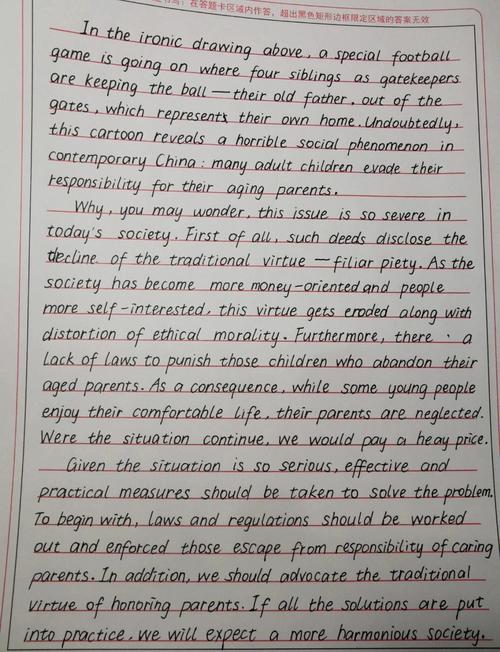 在答题卡区域内作答，超出黑色矩形边框限定区域的答案无效
In the ironic drawing above, a special football
game is going on where four siblings as gatekeepers
are keeping the ball — their old father, out of the
gates, which represents their own home. Undoubtedly,
this cartoon reveals a horrible social phenomenon in
contemporary China: many adult children evade their
responsibility for their aging parents.
Why, you may wonder, this issue is so severe in
today's society. First of all, such deeds disclose the
decline of the traditional virtue — filiar piety. As the
society has become more money-oriented and people
more self-interested, this virtue gets eroded along with
distortion of ethical morality. Furthermore, there · a
lack of laws to punish those children who abandon their
aged parents. As a consequence, while some young people
enjoy their comfortable life, their parents are neglected.
Were the situation continue, we would pay a heay price.
Given the situation is so serious, effective and
practical measures should be taken to solve the problem.
To begin with, laws and regulations should be worked
out and enforced those escape from responsibility of caring
parents. In addition, we should advocate the traditional
virtue of honoring parents. If all the solutions are put
into practice, we will expect a more harmonious society.